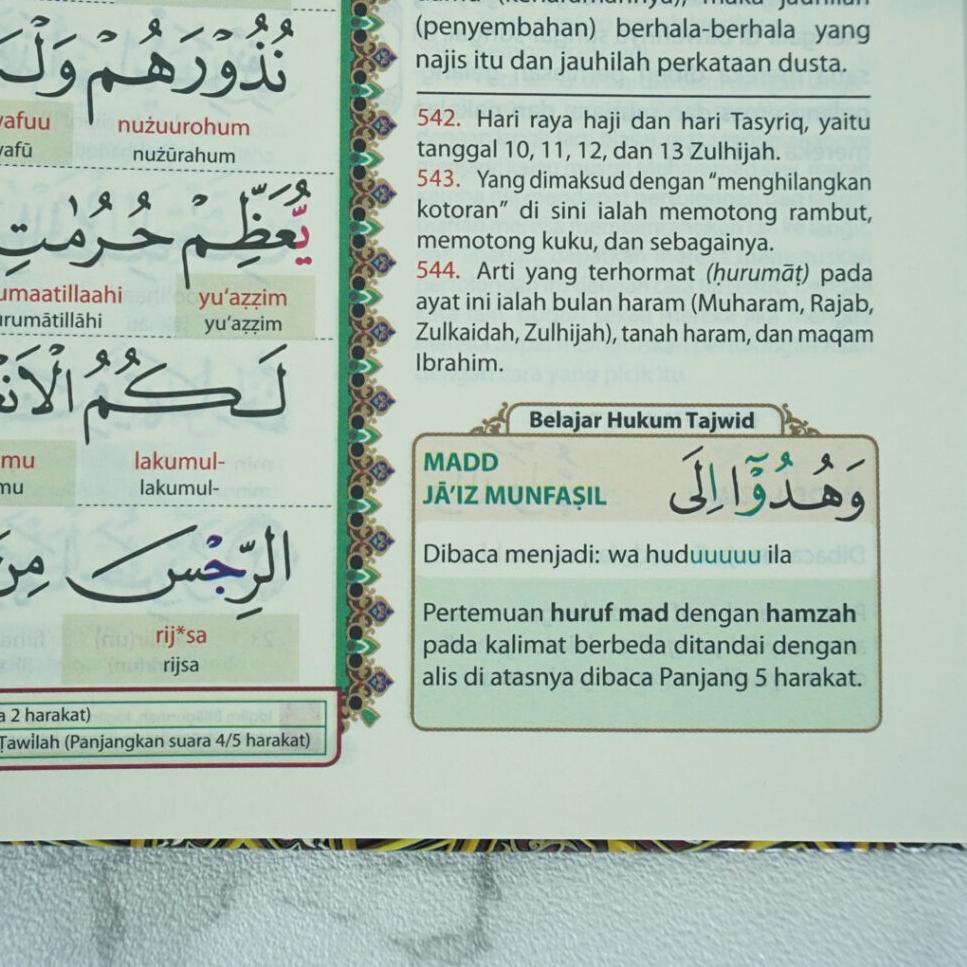 نُذُوْرَهُمْ
nużuurohum
nużūrahum
يُّعَظِّمْ حُرُمٰتِ
yu‘aẓẓim
yu‘aẓẓim
لَكُمُ
lakumul-
lakumul-
الرِّجْسَ
rij*sa
rijsa
a 2 harakat)
Ṭawīlah (Panjangkan suara 4/5 harakat)
(penyembahan) berhala-berhala yang
najis itu dan jauhilah perkataan dusta.
542. Hari raya haji dan hari Tasyriq, yaitu
tanggal 10, 11, 12, dan 13 Zulhijah.
543. Yang dimaksud dengan “menghilangkan
kotoran” di sini ialah memotong rambut,
memotong kuku, dan sebagainya.
544. Arti yang terhormat (ḥurumāṭ) pada
ayat ini ialah bulan haram (Muharam, Rajab,
Zulkaidah, Zulhijah), tanah haram, dan maqam
Ibrahim.
Belajar Hukum Tajwid
MADD
JĀ’IZ MUNFAṢIL
وَهُدُوْٓا اِلَى
Dibaca menjadi: wa huduuuuu ila
Pertemuan huruf mad dengan hamzah
pada kalimat berbeda ditandai dengan
alis di atasnya dibaca Panjang 5 harakat.